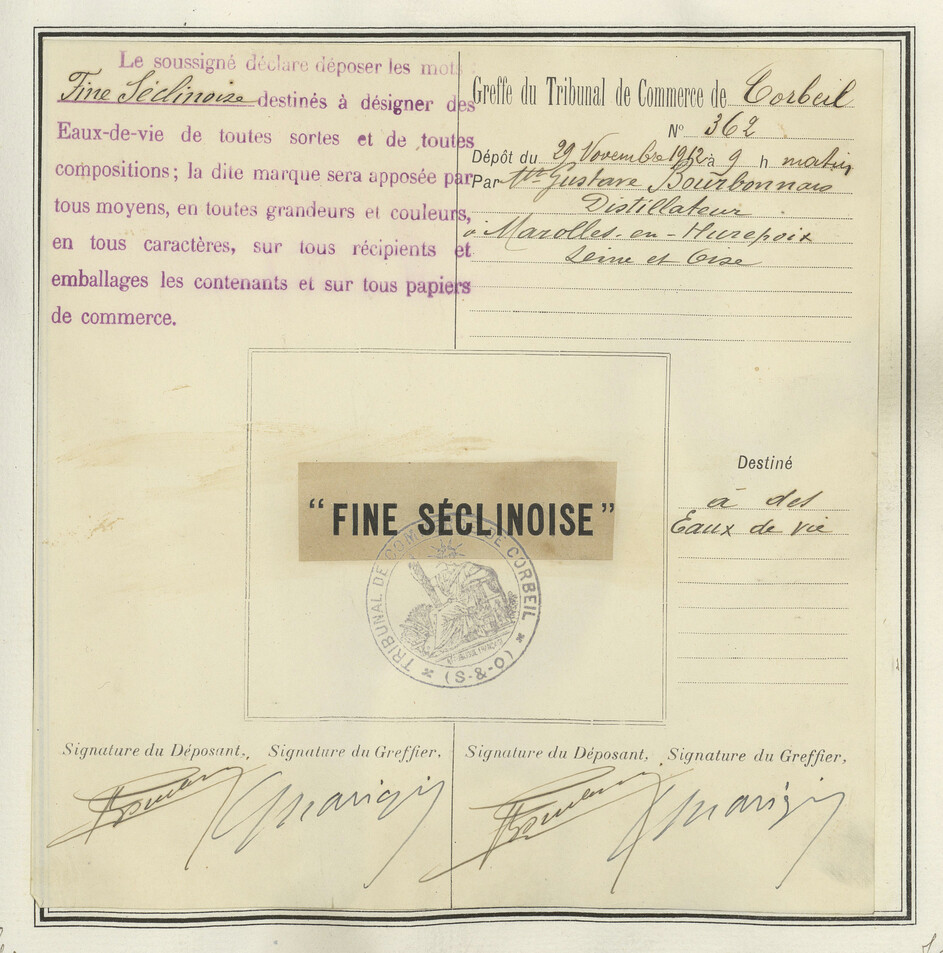 Le soussigné déclare déposer les mots
Fine Séclinoise destinés à désigner des
Eaux-de-vie de toutes sortes et de toutes
compositions; la dite marque sera apposée par
tous moyens, en toutes grandeurs et couleurs,
en tous caractères, sur tous récipients et
emballages les contenants et sur tous papiers
de commerce.
Greffe du Tribunal de Commerce de Corbeil
N° 362
Dépôt du 29 Novembre 1912 à 9 h matin
Par Gustave Bourbonnais
Distillateur
à Marolles-en-Hurepoix
Seine et Oise
"FINE SÉCLINOISE"
TRIBUNAL DE COMMERCE DE CORBEIL
(S-&-O)
Destiné
à des
Eaux de vie
Signature du Déposant, Signature du Greffier,
Signature du Déposant, Signature du Greffier,